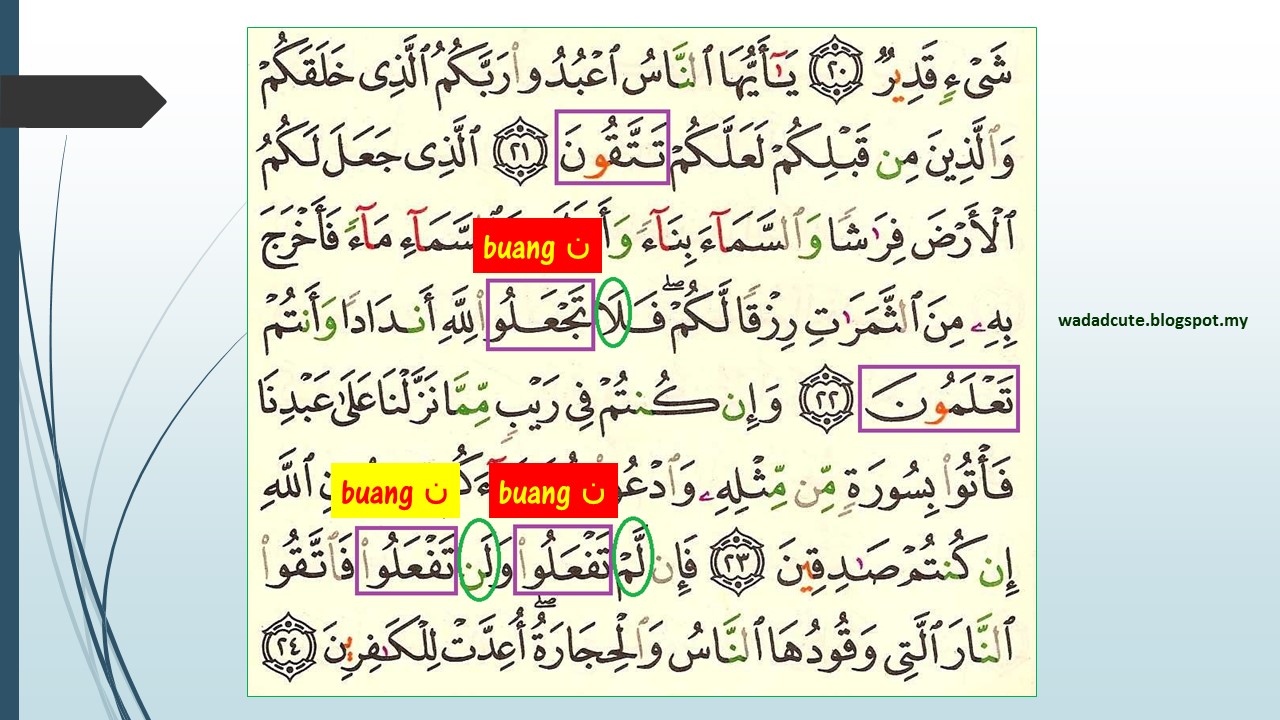 شَىْءٍ قَدِيرٌ ۝٢٠ يَـٰٓأَيُّهَا ٱلنَّاسُ ٱعْبُدُوا۟ رَبَّكُمُ ٱلَّذِى خَلَقَكُمْ
وَٱلَّذِينَ مِن قَبْلِكُمْ لَعَلَّكُمْ تَتَّقُونَ ۝٢١ ٱلَّذِى جَعَلَ لَكُمُ
ٱلْأَرْضَ فِرَٰشًا وَٱلسَّمَآءَ بِنَآءً ٱلسَّمَآءِ مَآءً فَأَخْرَجَ
buang ن
بِهِۦ مِنَ ٱلثَّمَرَٰتِ رِزْقًا لَّكُمْ ۖ فَلَا تَجْعَلُوا۟ لِلَّهِ أَندَادًا وَأَنتُمْ
wadadcute.blogspot.my
تَعْلَمُونَ ۝٢٢ وَإِن كُنتُمْ فِى رَيْبٍ مِّمَّا نَزَّلْنَا عَلَىٰ عَبْدِنَا
فَأْتُوا۟ بِسُورَةٍ مِّن مِّثْلِهِۦ ٱللَّهِ
buang ن buang ن
إِن كُنتُمْ صَـٰدِقِينَ ۝٢٣ فَإِن لَّمْ تَفْعَلُوا۟ وَلَن تَفْعَلُوا۟ فَٱتَّقُوا۟
ٱلنَّارَ ٱلَّتِى وَقُودُهَا ٱلنَّاسُ وَٱلْحِجَارَةُ ۖ أُعِدَّتْ لِلْكَـٰفِرِينَ ۝٢٤